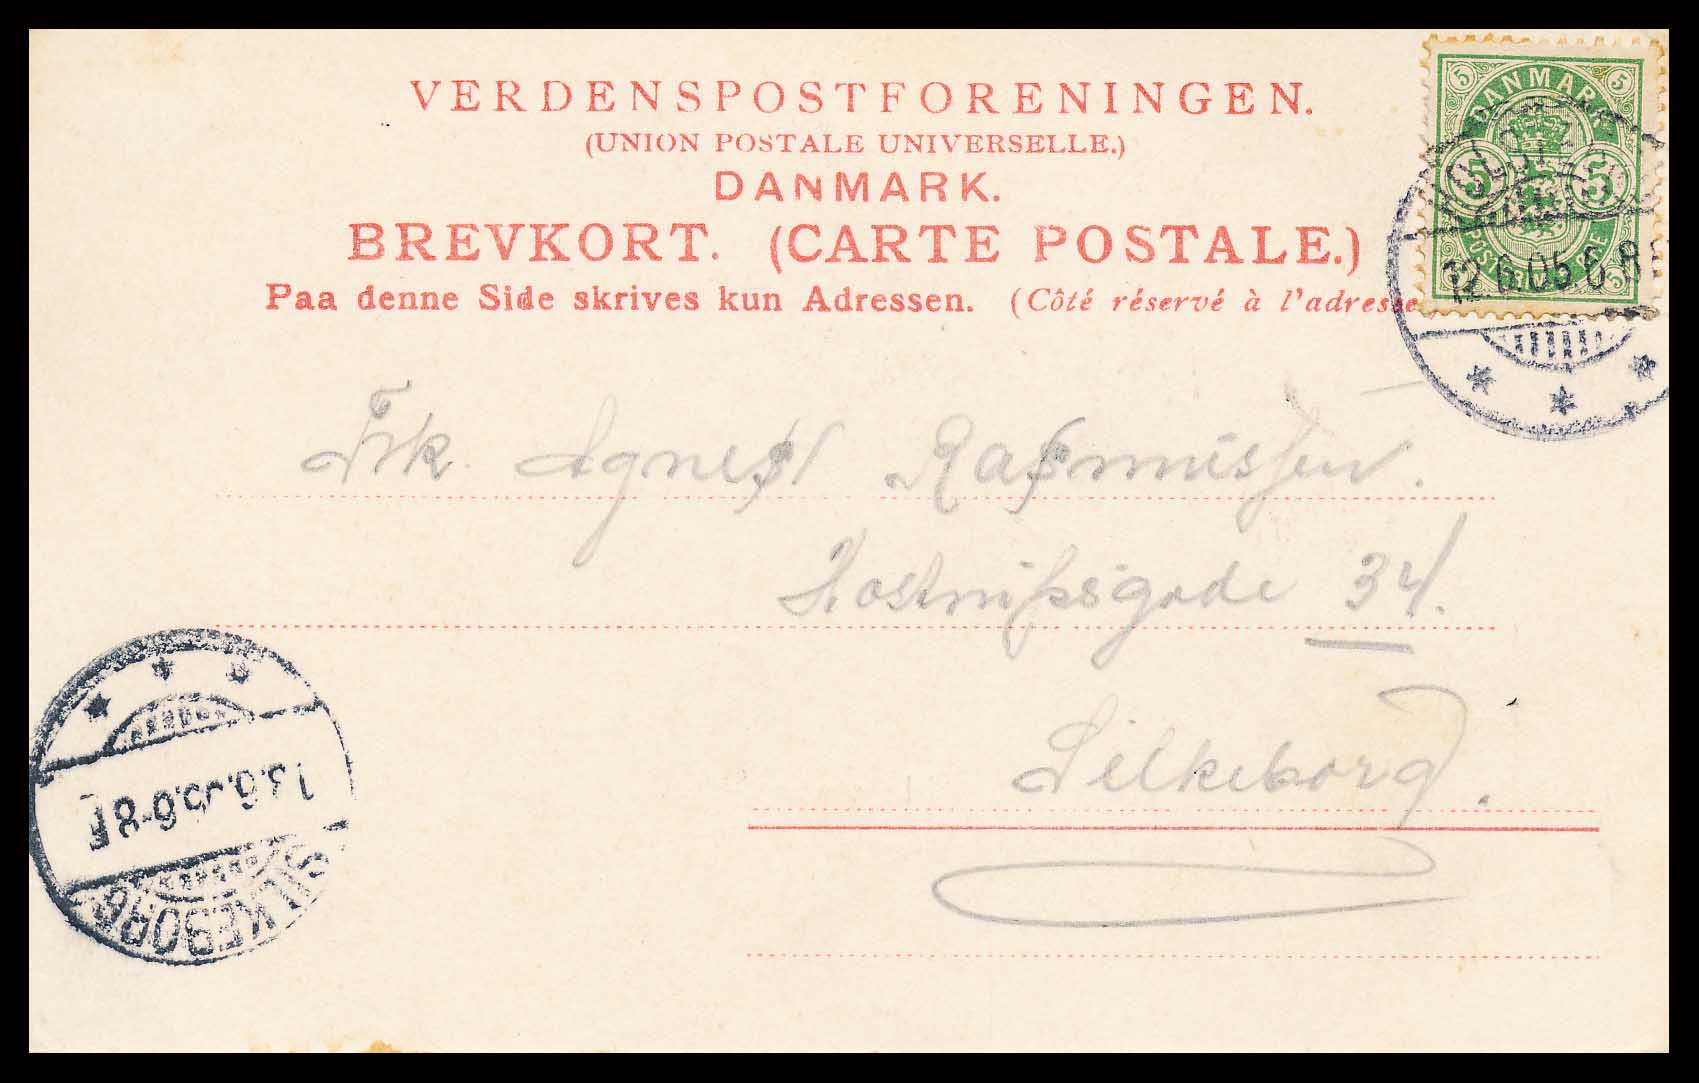 VERDENSPOSTFORENINGEN.
(UNION POSTALE UNIVERSELLE.)
DANMARK.
BREVKORT. (CARTE POSTALE.)
Paa denne Side skrives kun Adressen. (Côté réservé à l'adresse)
DANMARK
5 5
5 5
POSTFRIM. ØRE
5 5
12.6.05.6-8
Frk. Agnes Rasmussen.
34.
Silkeborg.
13.6.05.6-8 F
SILKEBORG